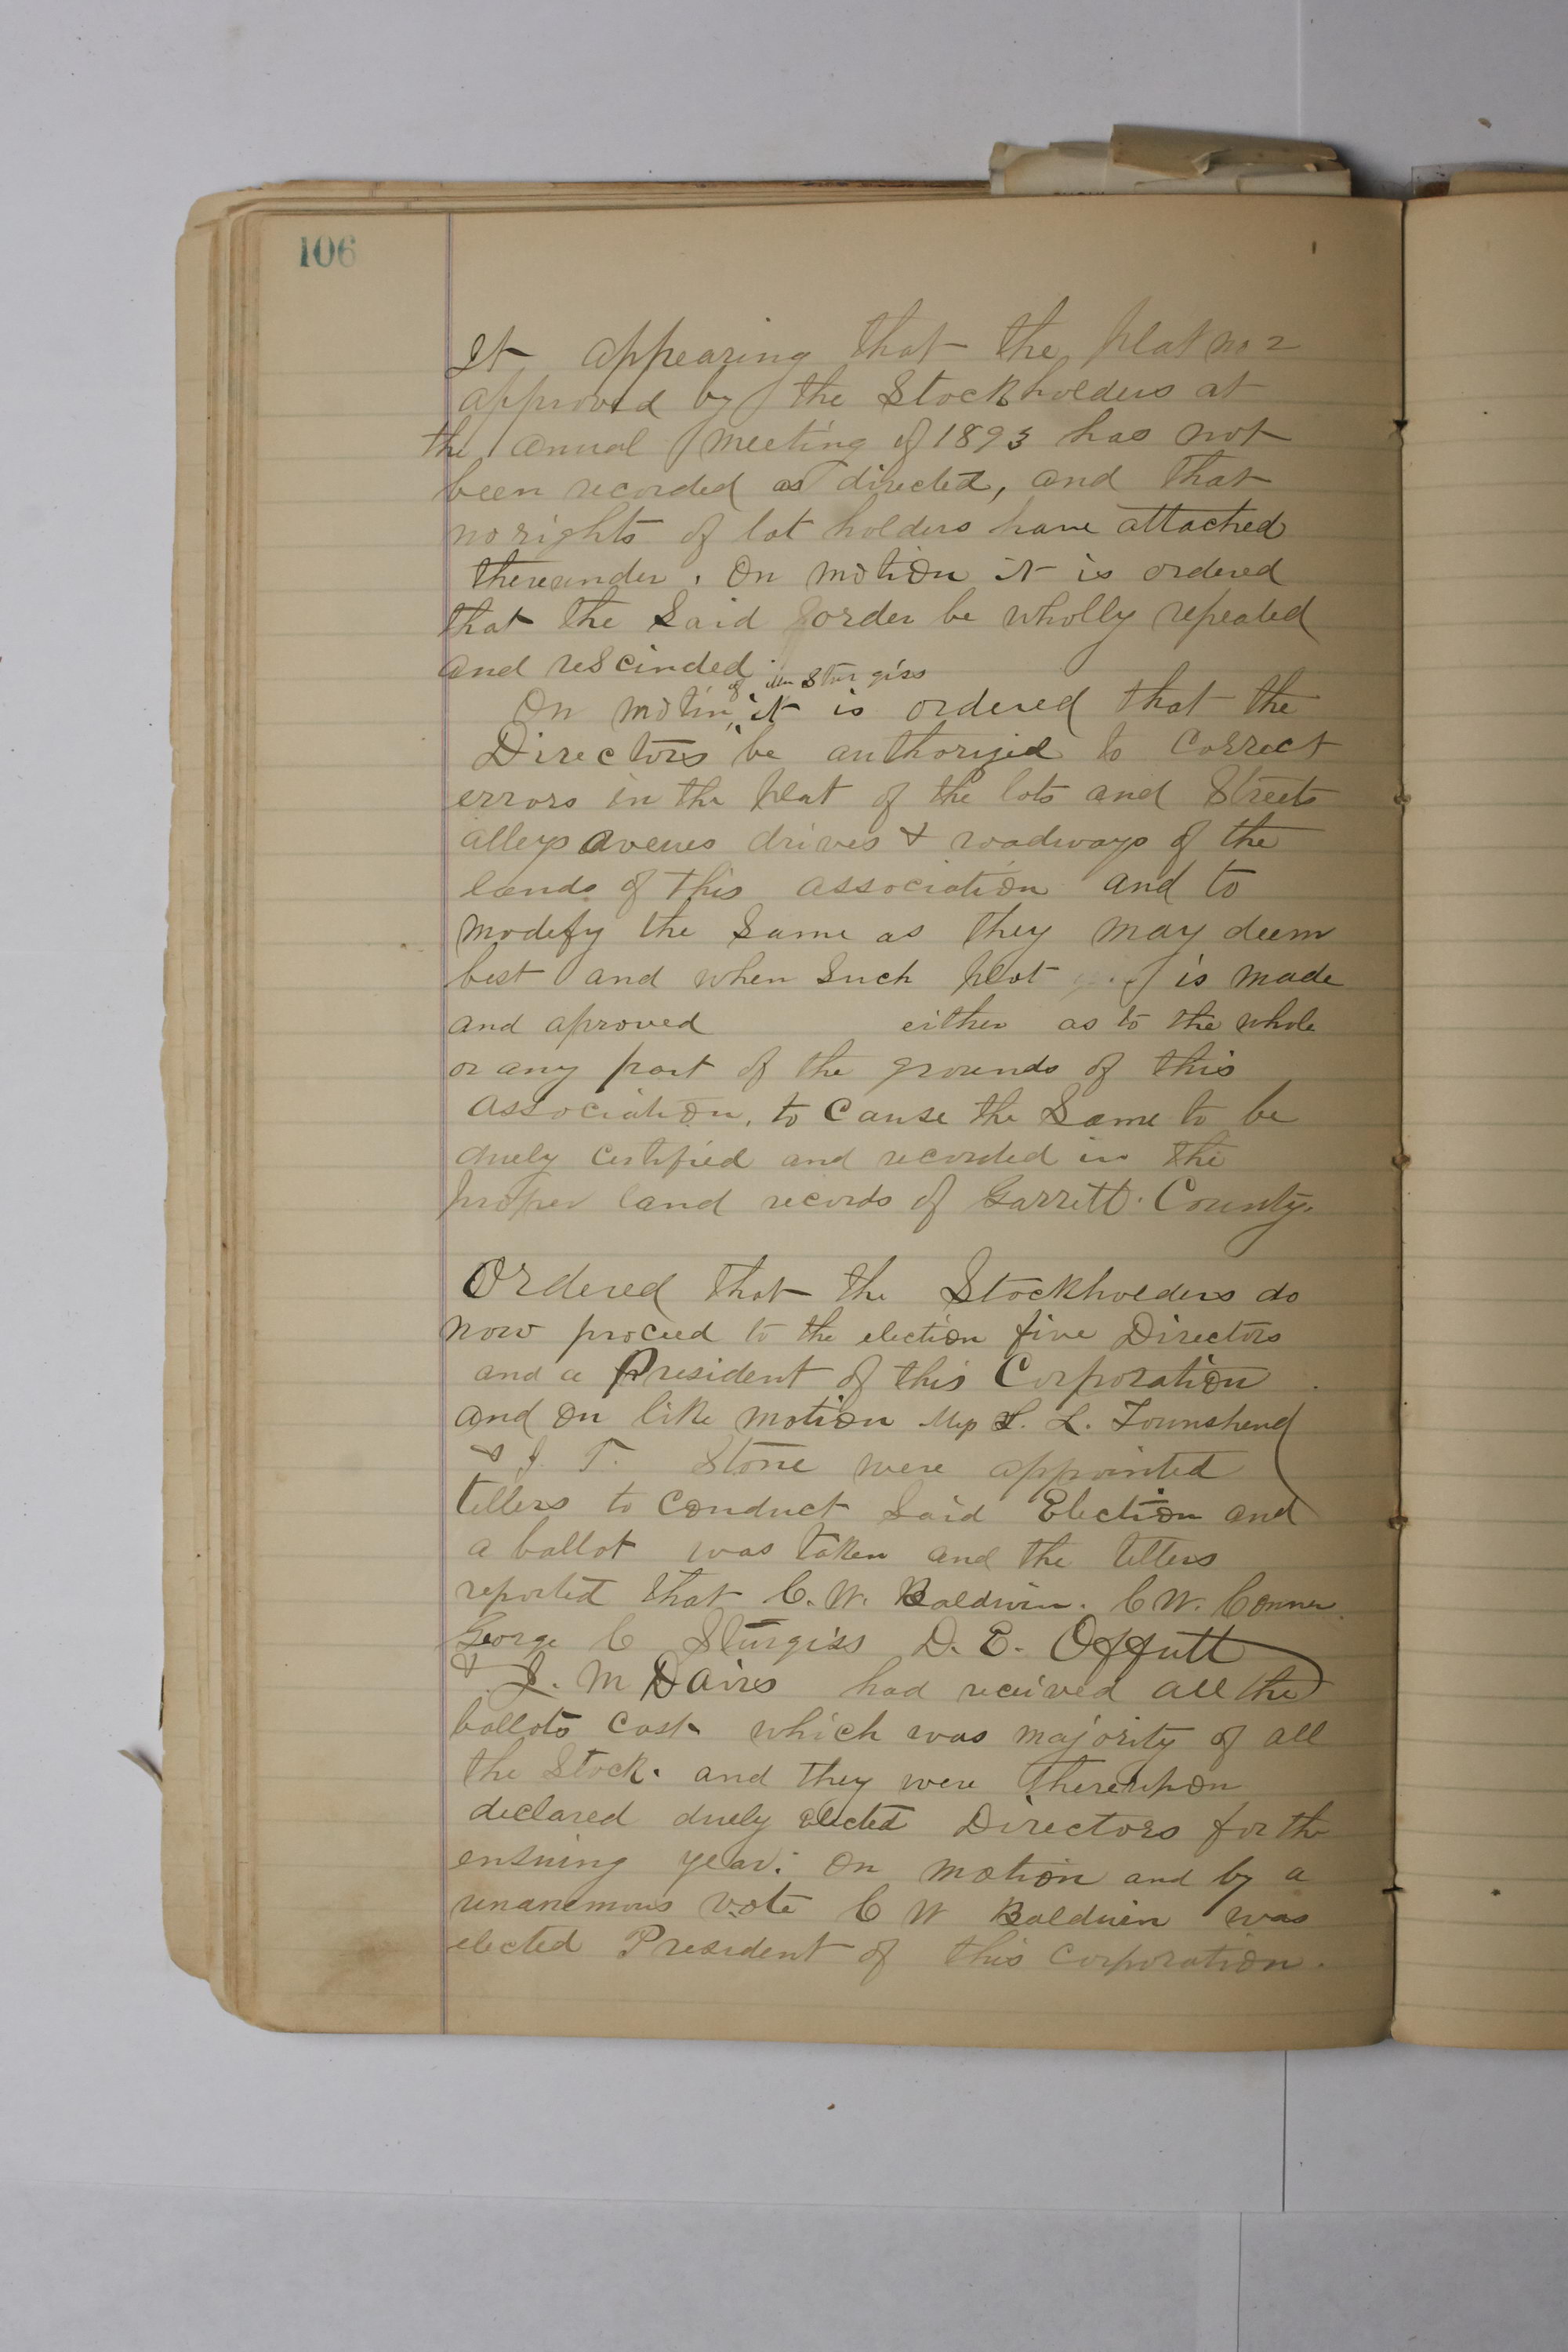 106
It appearing that the plat no 2
approved by the Stockholders at
the annual meeting of 1893 has not
been recorded as directed, and that
no rights of lot holders have attached
thereunder. On motion it is ordered
that the said order be wholly repealed
and rescinded.
of Sturgiss
On motion it is ordered that the
Directors be authorized to correct
errors in the plat of the lots and Streets
alleys avenes drives & roadways of the
lands of this association and to
modefy the same as they may deem
best and when such plat is made
and aproved either as to the whole
or any part of the grounds of this
association, to cause the same to be
duely certified and recorded in the
proper land records of Garrett County.
Ordered that the Stockholders do
now proceed to the election five Directors
and a President of this Corporation
and on like motion L. L. Townshend
& J. T. Stone were appointed
tellers to conduct said Election and
a ballot was taken and the tellers
reported that C. W. Baldwin. C W. Conner
George C Sturgiss D. E. Offutt
& J. M Davis had received all the
ballots cast which was majority of all
the Stock. and they were thereupon
declared duely elected Directors for the
ensuing year. On motion and by a
unanemous vote C W Baldwin was
elected President of this corporation.